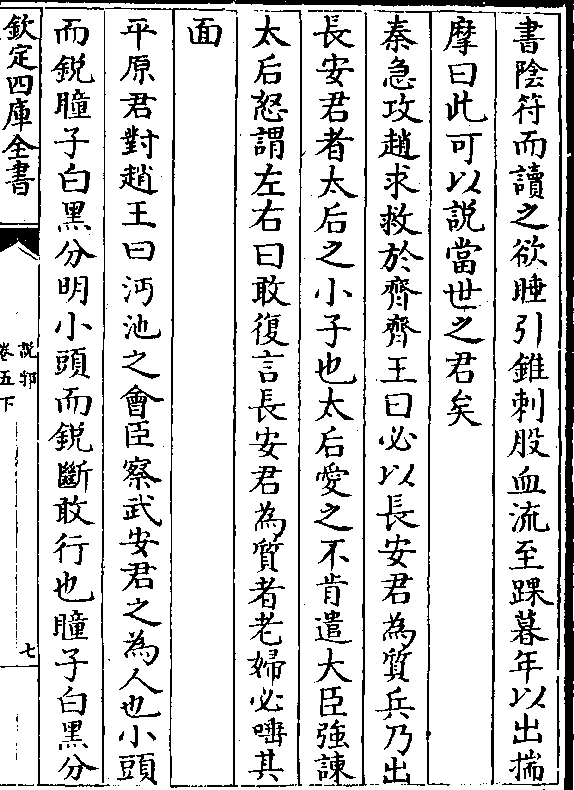 書陰符而讀之欲睡引錐刺股血流至踝暮年以出揣
摩曰此可以説當世之君矣
秦急攻趙求救於齊齊王曰必以長安君為質兵乃出
長安君者太后之小子也太后愛之不肯遣大臣強諫
太后怒謂左右曰敢復言長安君為質者老婦必唾其
面
平原君對趙王曰沔池之會臣察武安君之為人也小頭
而鋭瞳子白黑分明小頭而鋭斷敢行也瞳子白黑分
欽定四庫全書
説郛
卷五下
七